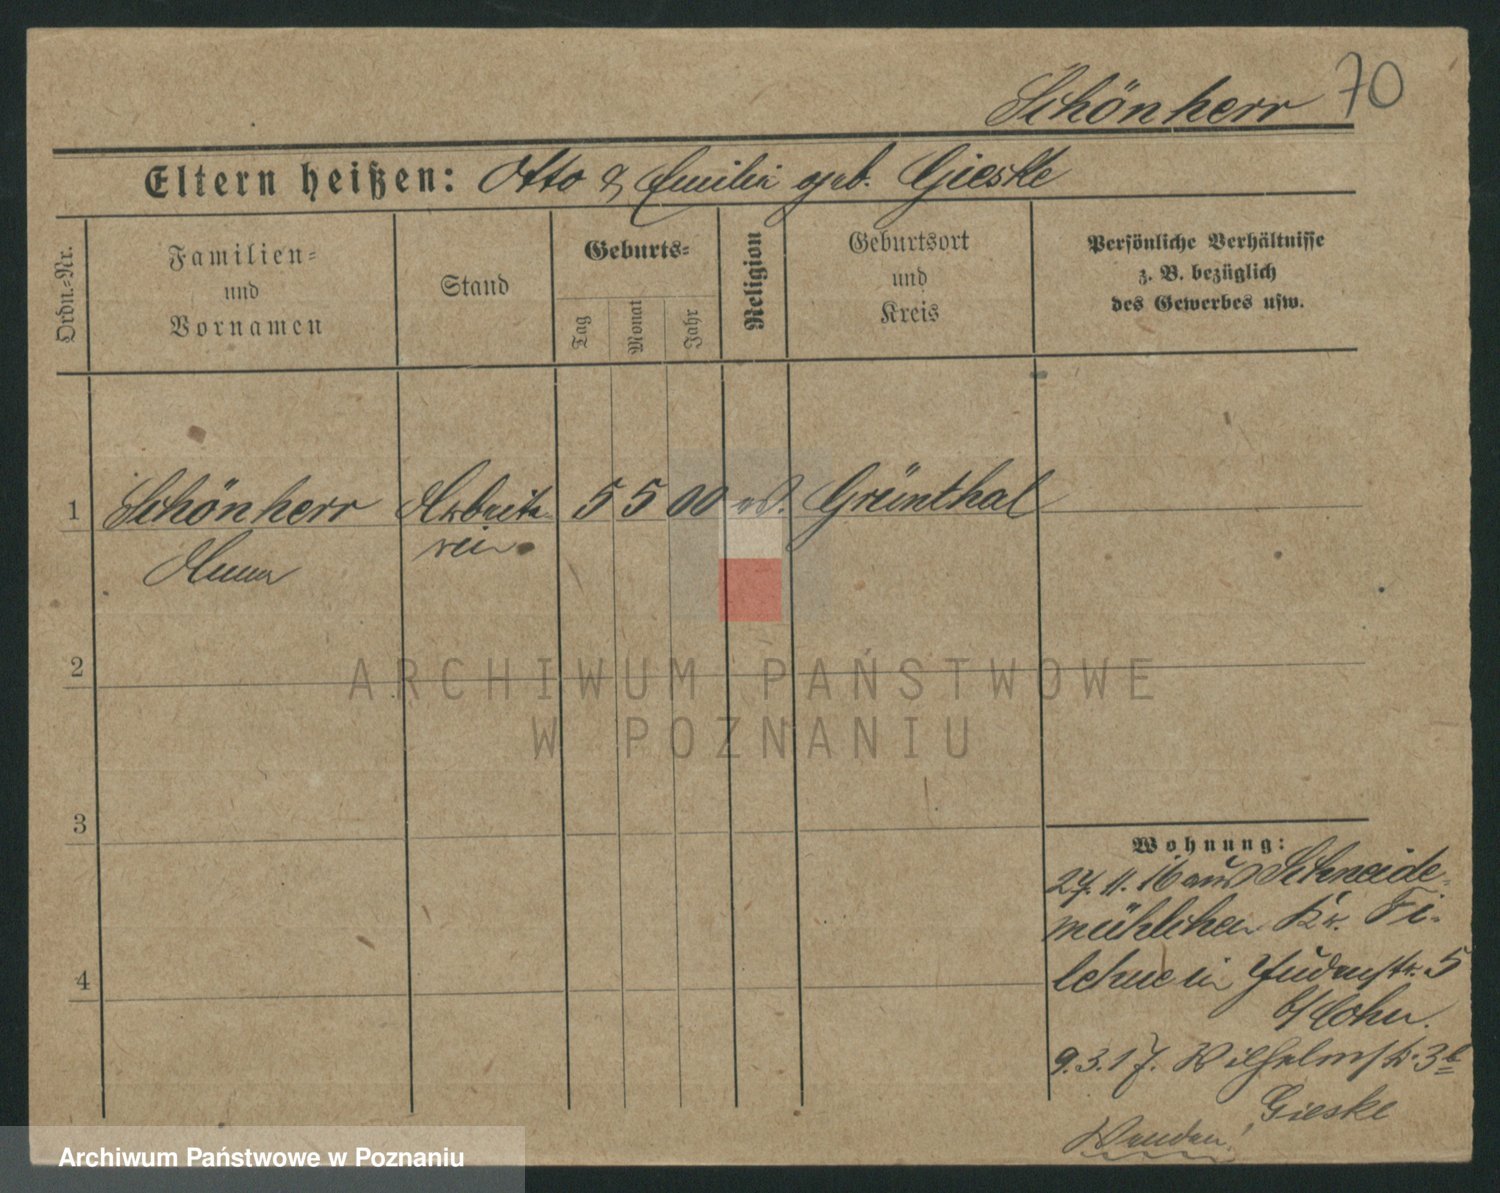 Schönherr 70
Eltern heißen: Otto & Emilie geb. Gieske
Ordn.-Nr.
Familien-
und
Vornamen
Stand
Geburts-
Tag
Monat
Jahr
Religion
Geburtsort
und
Kreis
Persönliche Verhältnisse
z. B. bezüglich
des Gewerbes usw.
1 Schönherr Arbeite- 5 5 00 ev. Grünthal
rin
2
3
4
Wohnung:
27. 11. 16 aus Schneide-
mühlchen Kr. Fi-
lehne in Judenstr. 5
b/Cohn.
9. 3. 17. Wilhelmstr. 3b
Gieske
Wenden!
ARCHIWUM PAŃSTWOWE
W POZNANIU
Archiwum Państwowe w Poznaniu